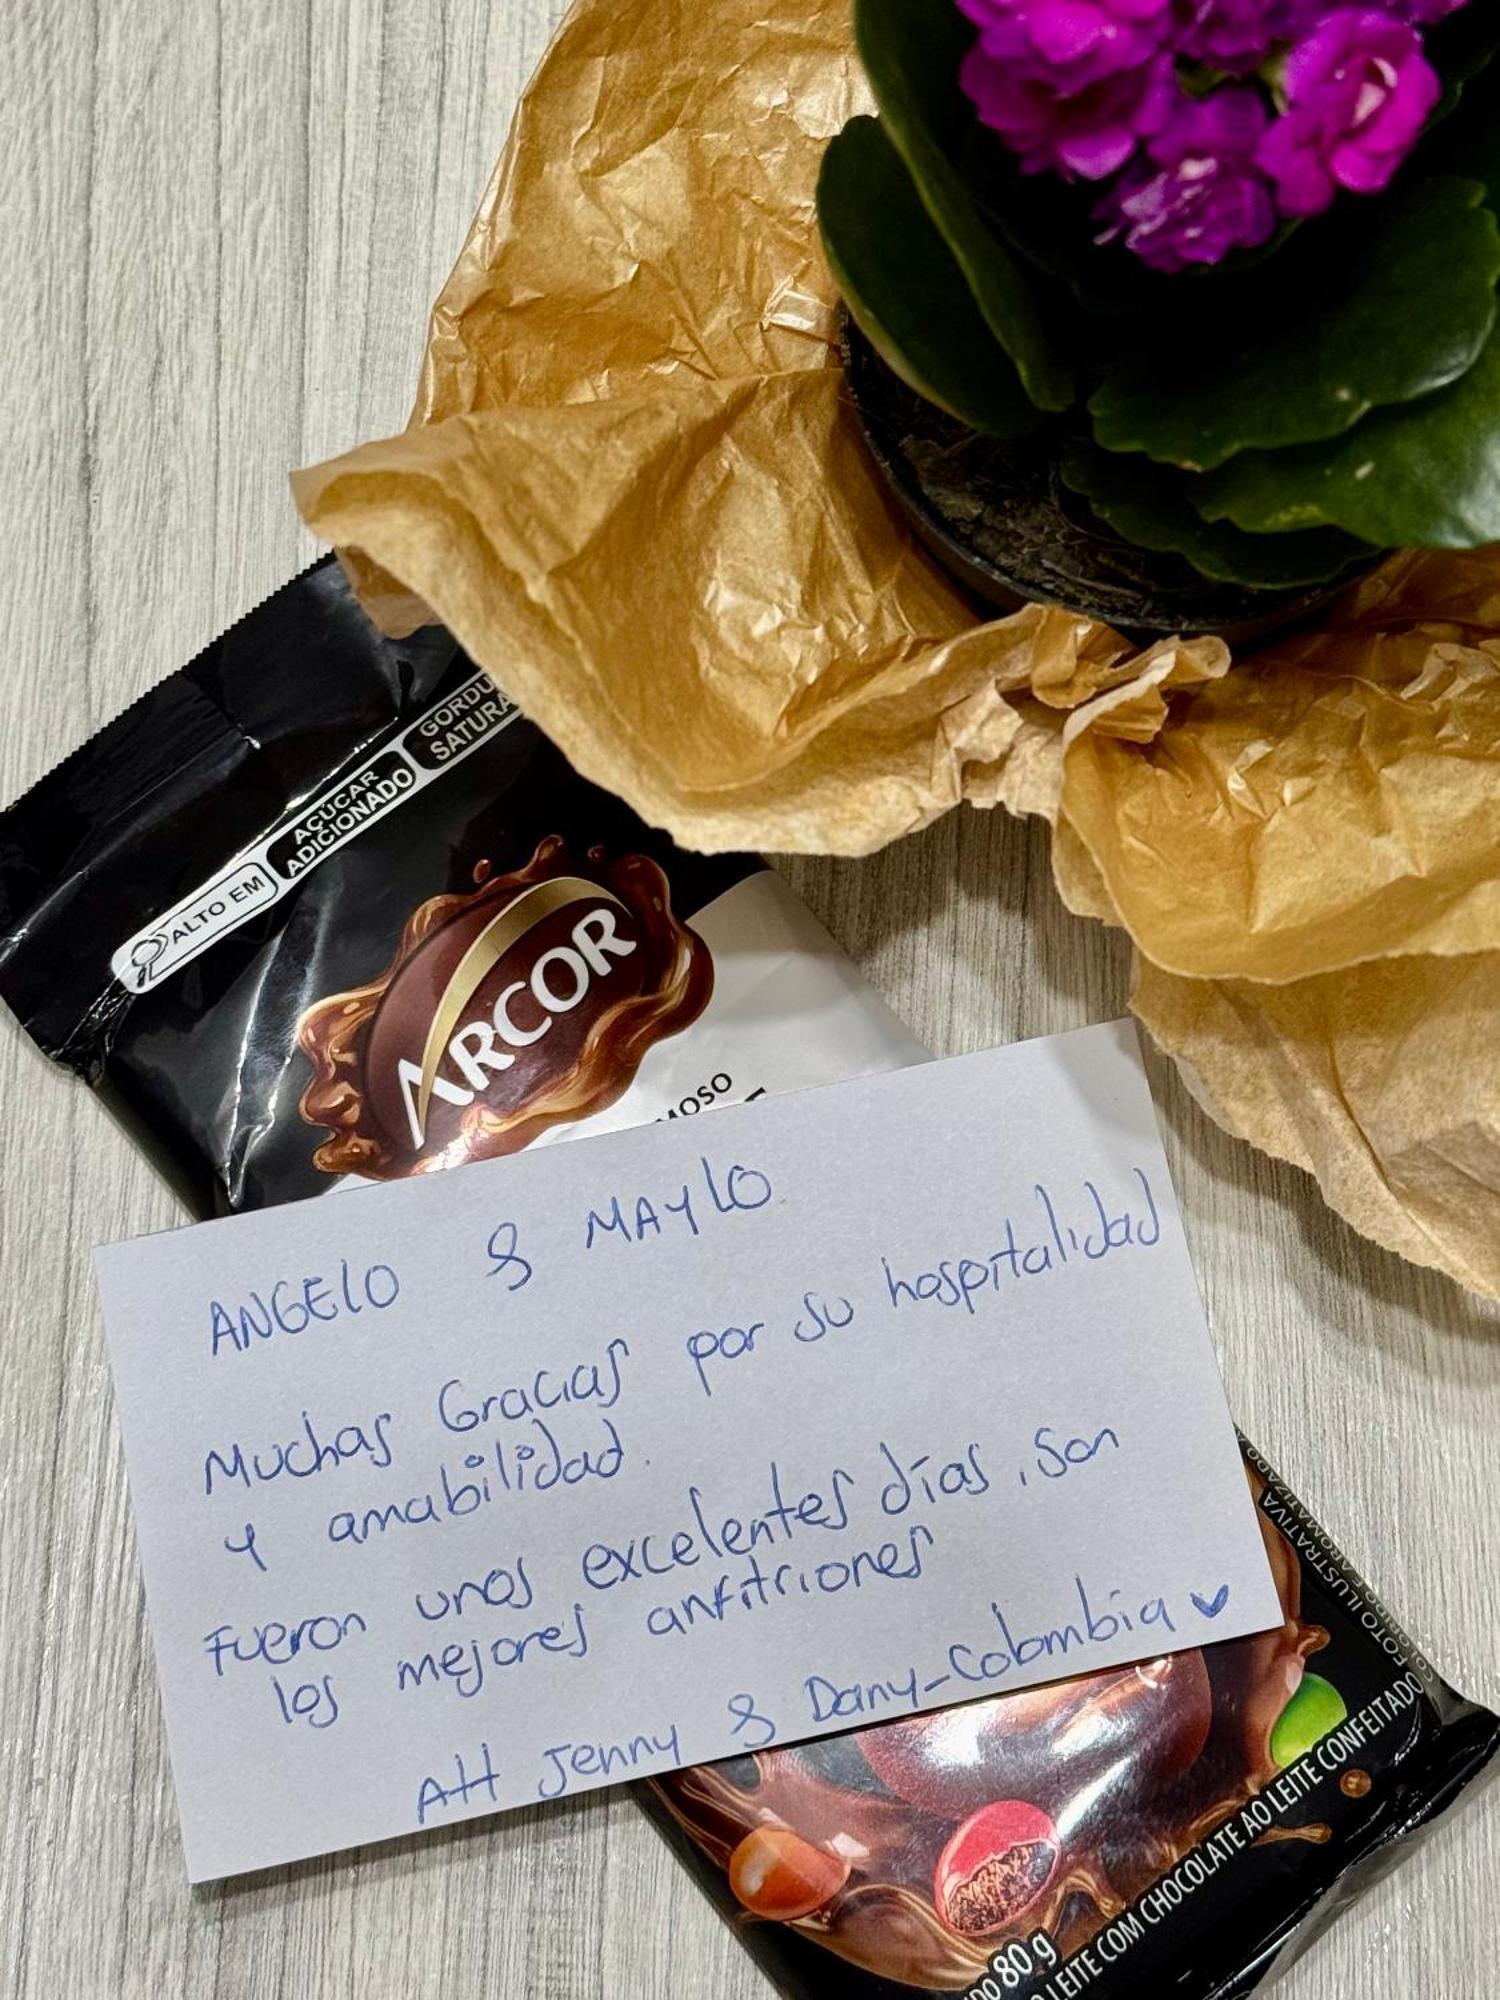 GORDU
SATURA
AÇÚCAR
ADICIONADO
ALTO EM
ARCOR
MOSO
ANGELO & MAYLO.
Muchas Gracias por su hospitalidad
y amabilidad.
Fueron unos excelentes días, son
los mejores anfitriones
Att Jenny & Dany-Colombia
FOTO ILUSTRATIVA
COLORIDO E AROMATIZADO A
80 g
O LEITE COM CHOCOLATE AO LEITE CONFEITADO